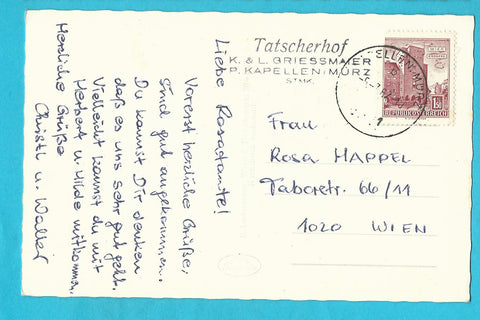 Liebe Rosatante!
Vorerst herzliche Grüße,
sind gut angekommen.
Du kannst Dir denken
daß es uns sehr gut geht.
Vielleicht kannst du mit
Herbert u. Hilde mitkommen.
Herzliche Grüße
Christl u. Walter
Tatscherhof
K. & L. GRIESSMAIER
P. KAPELLEN/MÜRZ
STMK.
REPUBLIK ÖSTERREICH
Frau
ROSA HAPPEL
Taborstr. 66/11
1020 WIEN